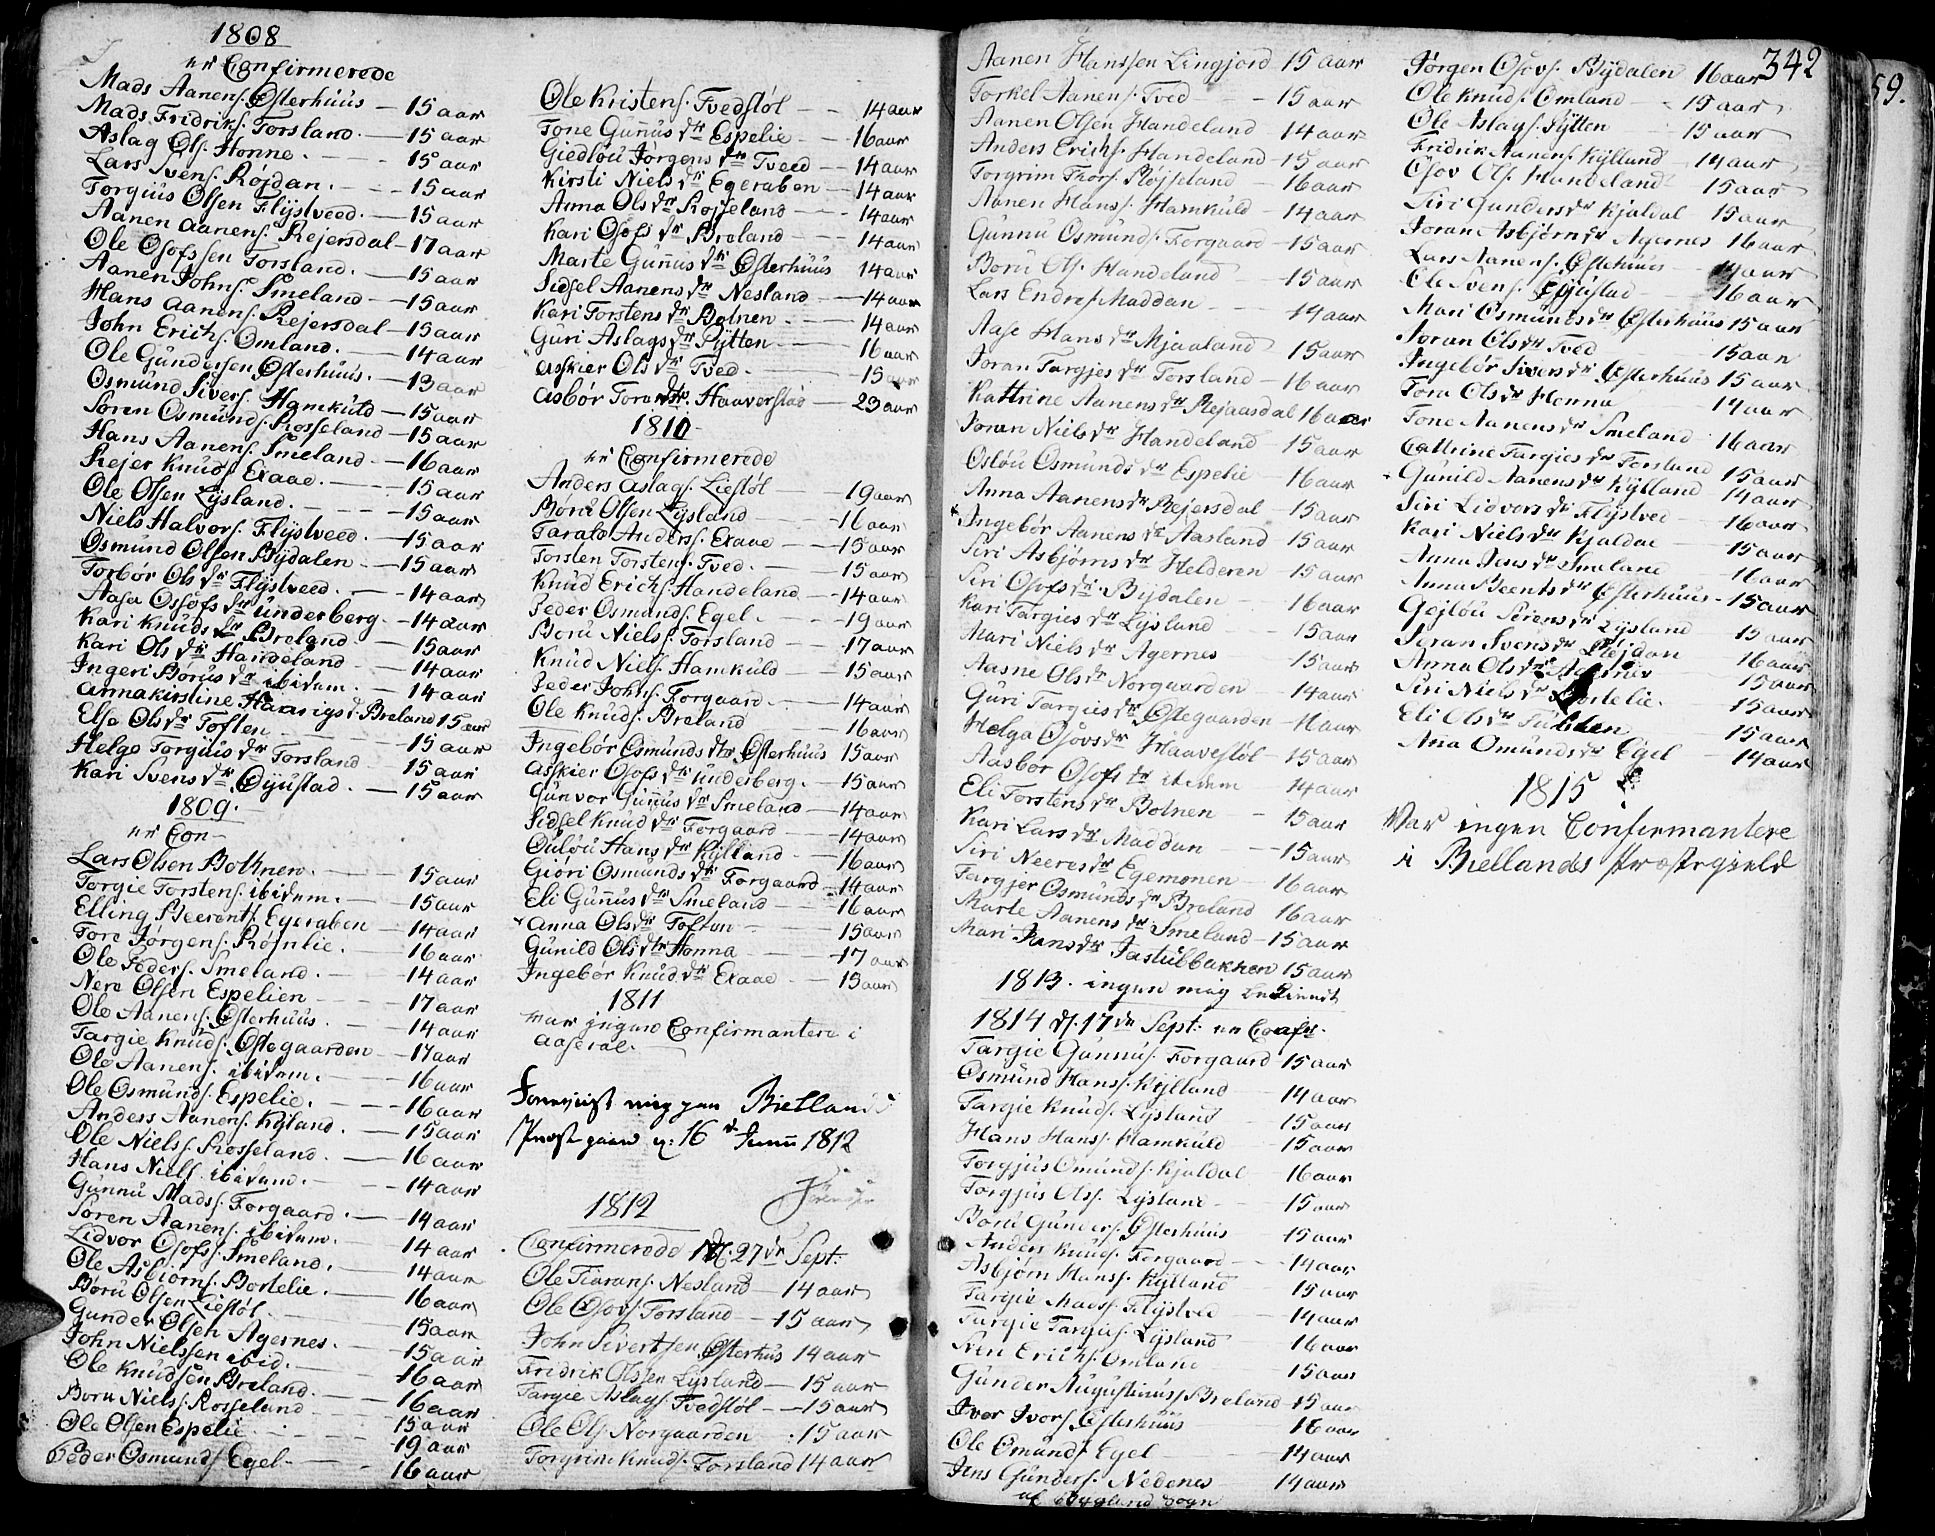 1808
er Confirmerede
Mads Aanens. Østerhuus — 15 aar
Mads Fridriks. Forsland — 15 aar
Aslag Ols. Honne — 15 aar
Lars Svens. Røjdan — 15 aar
Torgius Olsen Flÿstveed — 15 aar
Aanen Aanens. Rejersdal — 17 aar
Ole Osofssen Forsland — 15 aar
Aanen Johns. Smeland — 15 aar
Hans Aanens. Rejersdal — 15 aar
John Erichs. Omland — 14 aar
Ole Gundersen Østerhuus — 13 aar
Osmund Sivers. Hamkuld — 15 aar
Søren Osmunds. Rosseland — 15 aar
Hans Aanens. Smeland — 16 aar
Rejer Knuds. Exaae — 15 aar
Ole Olsen Lÿsland — 15 aar
Niels Halvors. Flÿstveed — 15 aar
Osmund Olsen Bÿdalen — 15 aar
Torbør Ols dr Flÿstveed — 14 aar
Aasa Ossofs dr Underberg — 14 aar
Kari Knuds dr Breland — 15 aar
Kari Ols dr Handeland — 14 aar
Ingeri Børus dr ibidem — 14 aar
Annakirstine dr Breland 15 aar
Else Ols dr Toften — 15 aar
Helge Torguis dr Forsland 15 aar
Kari Svens dr Øÿustad — 15 aar
1809.
er Con—
Lars Olsen Bottnen — 15 aar
Torgie Torstens. ibidem — 15 aar
Elling Beerents. Egeraben — 14 aar
Tore Jørgens. Røsnlie — 16 aar
Ole Peders. Smeland — 14 aar
Nere Olsen Espelien — 17 aar
Ole Aanens. Østerhuus — 14 aar
Targie Knuds. Østegaarden — 17 aar
Ole Aanens. ibidem — 16 aar
Ole Osmunds. Espelie — 16 aar
Anders Aanens. Kÿland — 15 aar
Ole Niels. Rosseland — 16 aar
Hans Niels. ibidem — 14 aar
Gunnu Mads. Forgaard — 14 aar
Søren Aanens. ibidem — 14 aar
Lidvor Osofs. Smeland — 14 aar
Ole Asbiørns. Bortelie — 16 aar
Børu Olsen Liestøl — 15 aar
Gunder Olsen Agernes — 15 aar
John Nielssen ibid. — 16 aar
Ole Knudsen Breland — 16 aar
Boru Niels. Rosseland — 15 aar
Ole Olsen Espelie — 19 aar
Peder Osmunds. Egel — 16 aar
Ole Kristens. Tvedstøl — 14 aar
Tone Gunnus dr Espelie — 16 aar
Giedløu Jørgens dr Tveed — 14 aar
Kirsti Niels dr Egeraben — 14 aar
Anna Ols dr Rosseland — 14 aar
Kari Osofs dr Breland — 14 aar
Marte Gunnus dr Østerhuus 14 aar
Sidsel Aanens dr Nesland — 14 aar
Kari Torstens dr Botnen — 14 aar
Guri Aslags dr Rÿtten — 16 aar
Asskier Ols dr Tved — 15 aar
Asbør Tores dr Haaverstad — 23 aar
1810
er Confirmerede
Anders Aslags. Liestøl — 19 aar
Børu Olsen Lÿsland — 16 aar
Tarald Anders. Exaae — 15 aar
Torsten Torstens. Tved — 15 aar
Knud Erichs. Handeland — 14 aar
Peder Osmunds. Egel — 19 aar
Boru Niels. Forsland — 17 aar
Knud Niels. Hamkuld — 15 aar
Peder Johns. Forgaard — 14 aar
Ole Knuds. Breland — 16 aar
Ingebør Osmunds dtr Østerhuus 15 aar
Asskier Osofs dr Underberg — 15 aar
Gunvor Gunnus dr Smeland — 14 aar
Sidsel Knud dr Forgaard — 14 aar
Ouløu Hans dr Kÿlland — 16 aar
Giøri Osmunds dr Forgaard — 14 aar
Eli Gunnus dr Smeland — 16 aar
Anna Ols dr Toften — 15 aar
Gunild Ols dtr Honna — 17 aar
Ingebør Knud dr Exaae — 15 aar
1811
var ingen Confirmantere i
Aaseral.
Foreviist mig paa Bielland
Præstegaard d: 16 de Junii 1812
1812
Confirmerede d. 27 de Sept.
Ole Tiarans. Nesland — 14 aar
Ole Osovs. Forsland — 15 aar
John Sivertsen Østerhus 14 aar
Fridrik Olssen Lÿsland — 15 aar
Targie Aslags. Tvedstøl — 15 aar
Ole Ols. Norgaarden : 15 aar
Torgrim Knuds. Forsland 14 aar
Aanen Hanssen Lingjord 15 aar
Torkel Aanens. Tved — 15 aar
Aanen Olsen Handeland 14 aar
Anders Erichs. Handeland — 15 aar
Torgrim Thors. Røjseland — 16 aar
Aanen Hans. Hamkuld — 14 aar
Gunnu Osmunds. Forgaard — 15 aar
Boru Ols. Handeland — 15 aar
Lars Endres. Maddan — 14 aar
Aase Hans dr Mjaaland 15 aar
Joran Targjes dr Forsland — 16 aar
Kattrine Aanens dr Rejaasdal 16 aar
Joran Niels dr Handeland — 15 aar
Osløu Osmunds dr Espelie — 16 aar
Anna Aanens dr Rejersdal — 15 aar
Ingebør Aanens dr Aasland 15 aar
Siri Asbjørns dr Helderen 15 aar
Siri Osofs dr Bÿdalen — 16 aar
Kari Targies dr Lÿsland — 15 aar
Mari Niels dr Agernes 15 aar
Aasne Ols dr Norgaarden — 14 aar
Guri Targies dr Østegaarden — 16 aar
Helga Osovs dr Haavestøl — 15 aar
Aasbør Osofs dr ibidem — 14 aar
Eli Torstens dr Botnen — 15 aar
Kari Lars dr Maddan — 15 aar
Siri Neeres dr Egemonen — 16 aar
Targjer Osmunds dr Breland 16 aar
Marte Aanens dr Smeland — 15 aar
Mari Jens dr Jastulbakken 15 aar
1813. ingen mig bekiendt
1814 d. 17 de Sept. er Conf.
Targie Gunnus. Forgaard 15 aar
Osmund Hans. Kÿlland — 14 aar
Targie Knuds. Lÿsland — 15 aar
Hans Hans. Hamkuld — 15 aar
Torgjus Omunds. Kjaldal — 16 aar
Torgjus Ols. Lÿsland — 15 aar
Boru Gunders. Østerhuus — 15 aar
Anders Knuds. Forgaard — 14 aar
Asbjørn Hans. Kÿlland 15 aar
Targie Mads. Flÿstved — 14 aar
Targie Targies. Lÿsland 16 aar
Sven Erichs. Omland 15 aar
Gunder Augustinus. Breland 15 aar
Iver Ivers. Østerhuus — 16 aar
Ole Omunds. Egel — 14 aar
Jens Gunders. Nedenes — 14 aar
af Bygland Sogn
342
59.
Jørgen Osovs. Bÿdalen 16 aar
Ole Knuds. Omland — 15 aar
Ole Aslags. Rÿtten — 15 aar
Fridrik Aanens. Kÿlland — 14 aar
Osov Ols. Handeland — 15 aar
Siri Gunders dr Kjaldal 15 aar
Joran Asbjørn dr Agernes 16 aar
Lars Aanens. Østehuus — 14 aar
Ole Svens. Øÿustad — 16 aar
Mari Osmunds dr Østerhuus 15 aar
Joran Ols dr Tved — 15 aar
Ingebør Sivers dr Østerhuus 15 aar
Tora Ols dr Honna — 14 aar
Tone Aanens dr Smeland — 16 aar
Cattrine Targies dr Forsland 15 aar
Gunild Aanens dr Kÿlland — 14 aar
Siri Lidvors dr Flÿstved — 16 aar
Kari Niels dr Kjaldal — 15 aar
Anna Jens dr Smeland — 16 aar
Anna Beents dr Østerhuus — 15 aar
Gejløu Sørens dr Lÿsland — 15 aar
Joran Svens dr Røjdan 16 aar
Anna Ols dr Agernes 15 aar
Siri Niels dr Bortelie — 15 aar
Eli Ols dr 15 aar
Ana Omunds dr Egel — 14 aar
1815
Var ingen Confirmantere
i Biellands Præstegield